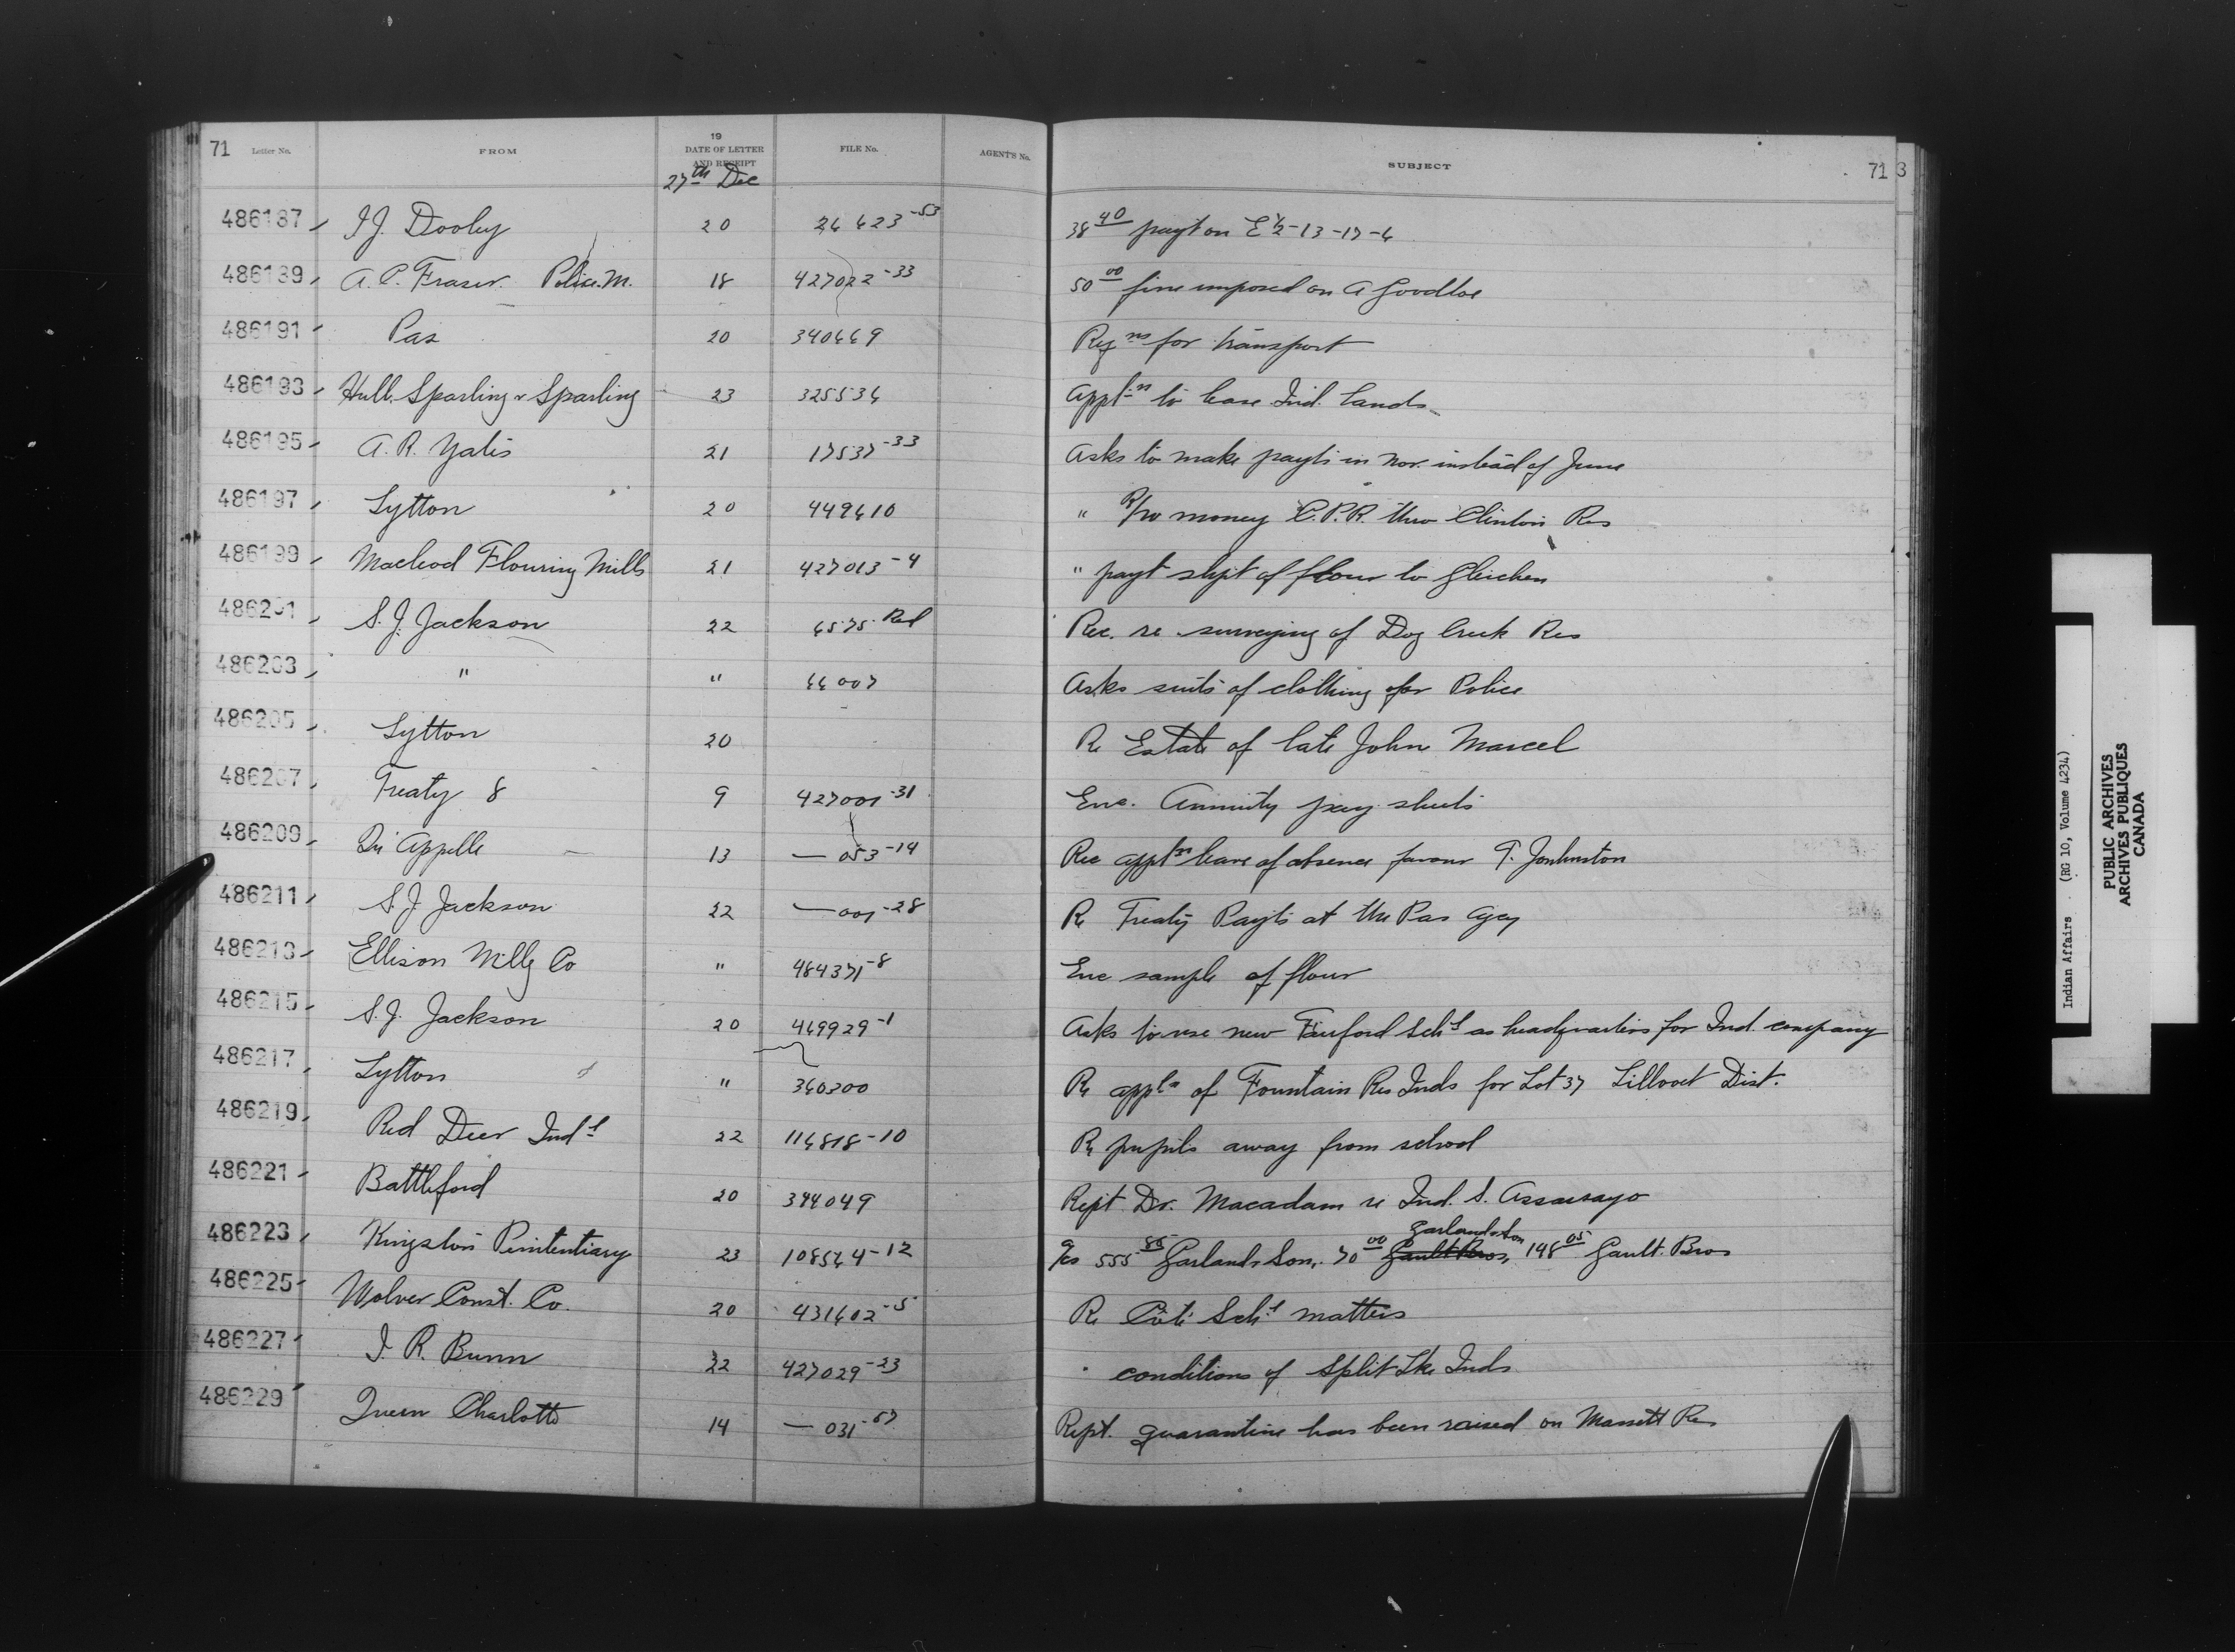 71 Letter No. FROM 19 DATE OF LETTER AND RECEIPT FILE No. AGENT'S No. SUBJECT 71 3
27th Dec
486187 I J. Dooley 20 24423-53 38 40 payt on E½-13-17-4
486189 A. C. Fraser. Police. M. 18 427022-33 50 00 fine imposed on A Goodloe
486191 Pas 20 340669 Reqns for transport
486193 Hull Sparling & Sparling 23 325534 Appln to lease Ind. Lands
486195 A. R. Yates 21 17537-33 Asks to make payts in Nov. instead of June
486197 Lytton 20 449610 " R/W money C.P.R. thro Clinton Res
486199 Macleod Flouring Mills 21 427013-4 " payt shpt of flour to Gleichen
486201 S. J. Jackson 22 6575 Red Rec. re surveying of Dog Creek Res
486203 " " 66007 Asks suits of clothing for Police
486205 Lytton 20 Re Estate of late John Marcel
486207 Treaty 8 9 427001-31 Enc. Annuity pay sheets
486209 Qu'Appelle 13 — 053-14 Rec appln leave of absence favour T. Johnston
486211 S. J. Jackson 22 — 001-28 Re Treaty Payts at the Pas Agcy
486213 Ellison Millg Co " 484371-8 Enc sample of flour
486215 S. J. Jackson 20 469929-1 Asks to use new Fairford Schl as headquarters for Ind. company
486217 Lytton " 360300 Re appln of Fountain Res Inds for Lot 37 Lillooet Dist.
486219 Red Deer Indl 22 116818-10 Re pupils away from school
486221 Battleford 20 394049 Rept Dr. Macadam re Ind. S. Assaisayo
Garland & Son
486223 Kingston Penitentiary 23 108564-12 a/cs 555 85 Garland & Son, 70 00 Gault Bros, 148 05 Gault Bros
486225 Wolver Const. Co. 20 431602-5 Re Cote Schl matters
486227 J. R. Bunn 22 427029-23 " conditions of Split Lke Inds
486229 Queen Charlotte 14 — 031-67 Rept. quarantine has been raised on Massett Res
Indian Affairs (RG 10, Volume 4234)
PUBLIC ARCHIVES
ARCHIVES PUBLIQUES
CANADA